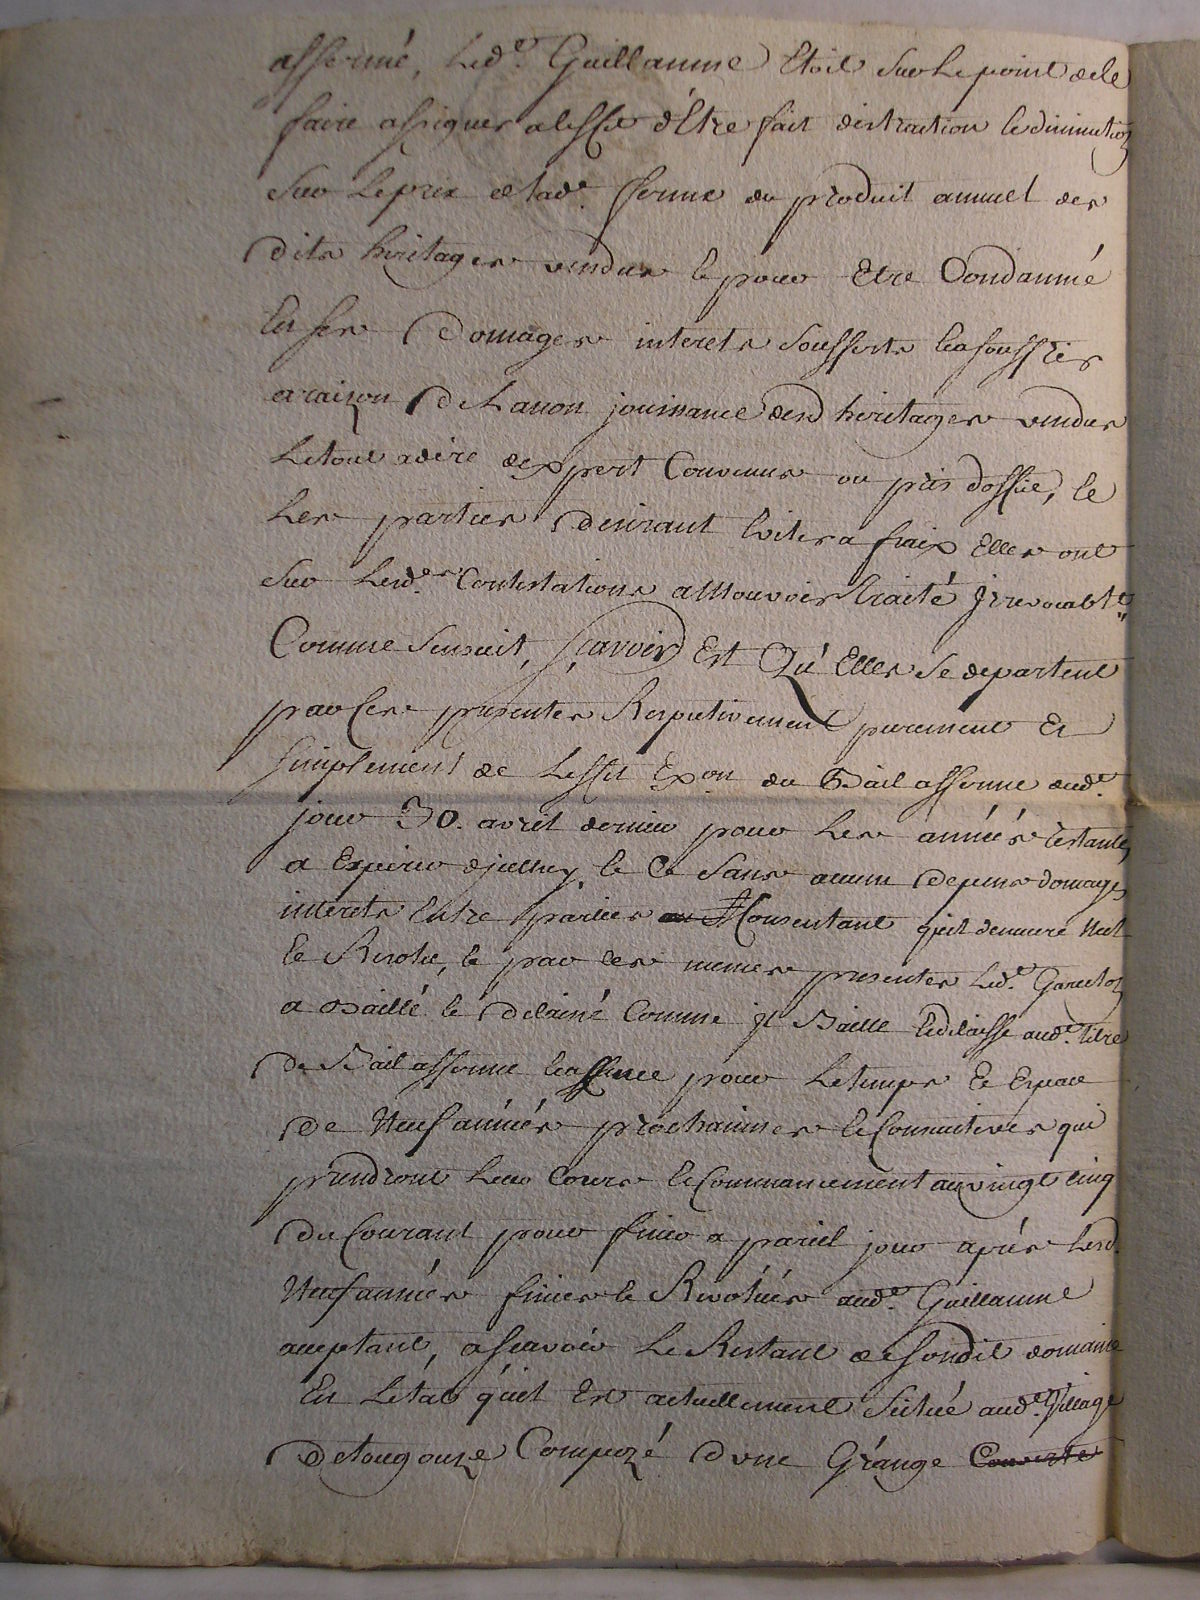 affermé, Led.e Guillaume Etoit Sur Le point de le
faire assigner a leffet d'Etre fait distraction & diminution
Sur Le prix de lad.e ferme du produit annuel des
dits heritages vendus & pour Etre Condanné
En ses Domages interets Soufferts & a souffrir
a raizon De La non jouissance desd heritages vendus
Le tout a dire dexpert Convenus ou pris doffice, &
Les parties Desirant Eviter a fraix Elles ont
Sur Lesd.es Contestations a Mouvoir traité Jrrevocablt
Comme Sensuit, Sçavoir Est Qu'Elles Se departent
par Ces presentes Respectivement purement Et
Simplement de Leffet Exon du Bail afferme dud.e
jour 30. avril dernier pour Les années restantes
a Expirer djcelluy, & Ce Sans aucun Depens domages
interets Entre parties Consentant quil demeure Nul
& Resolu, & par Ces memes presentes Led.e
a Baillé & Delaissé Comme jl Baille & delaisse aud.e titre
De Bail afferme & afferme pour Le temps & Espace
De Neuf années prochaines & Consecutives qui
prendront Leur Cours & Commancement au vingt cinq
Du Courant pour finir a pareil jour aprés Lesd.
Neuf années finies & Revolües aud.e Guillaume
acceptant, a scavoir Le Restant de Sondit domaine
En Letat quil Est actuellement Scitué aud.e Village
De Compozé Dune Grange Couverte